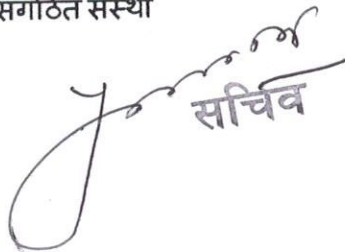 संगठित संस्था
सचिव